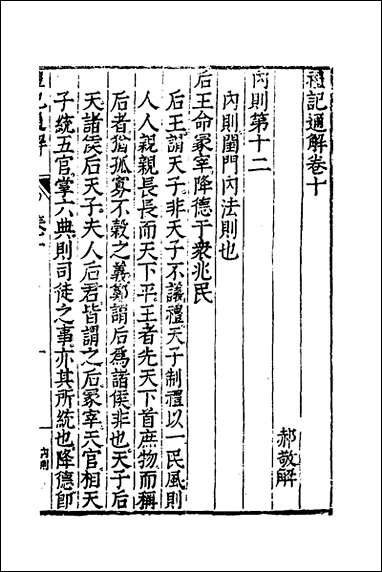 禮記通解卷十
郝敬解
內則第十二
內則閨門內法則也
后王命冢宰降德于衆兆民
后王謂天子非天子不議禮天子制禮以一民風則
人人親親長長而天下平王者先天下首庶物而稱
后者猶孤寡不穀之義鄭謂后爲諸侯非也天子后
天諸侯后天子夫人后君皆謂之后冢宰天官相天
子統五官掌六典則司徒之事亦其所統也降德卽
禮記通解
卷十
一
內則